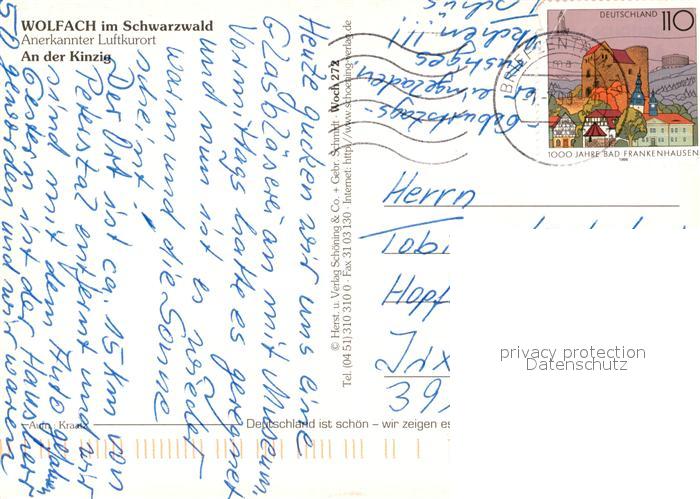 WOLFACH im Schwarzwald
Anerkannter Luftkurort
An der Kinzig
DEUTSCHLAND 110
1000 JAHRE BAD FRANKENHAUSEN
1998
Heute gucken wir uns eine
Glasbläserei an mit Museum.
Vormittags hatte es geregnet
und nun ist es wieder
warm und die Sonne
scheint.
Der Ort ist ca. 15 km von
entfernt und wir
sind mit dem Auto gefahren
Gestern ist der Hausherr
50 geworden und wir waren
Geburtstags-
eingeladen
!!!
Tschüs
Herrn
Tobi
Hopf
39
© Herst. u. Verlag Schöning & Co. + Gebr. Schmidt · Woch 272
Tel. (04 51) 310 310 0 · Fax 31 03 130 · Internet: http://www.schoening-verlag.de
Aufn.: Kraatz
Deutschland ist schön – wir zeigen es
privacy protection
Datenschutz